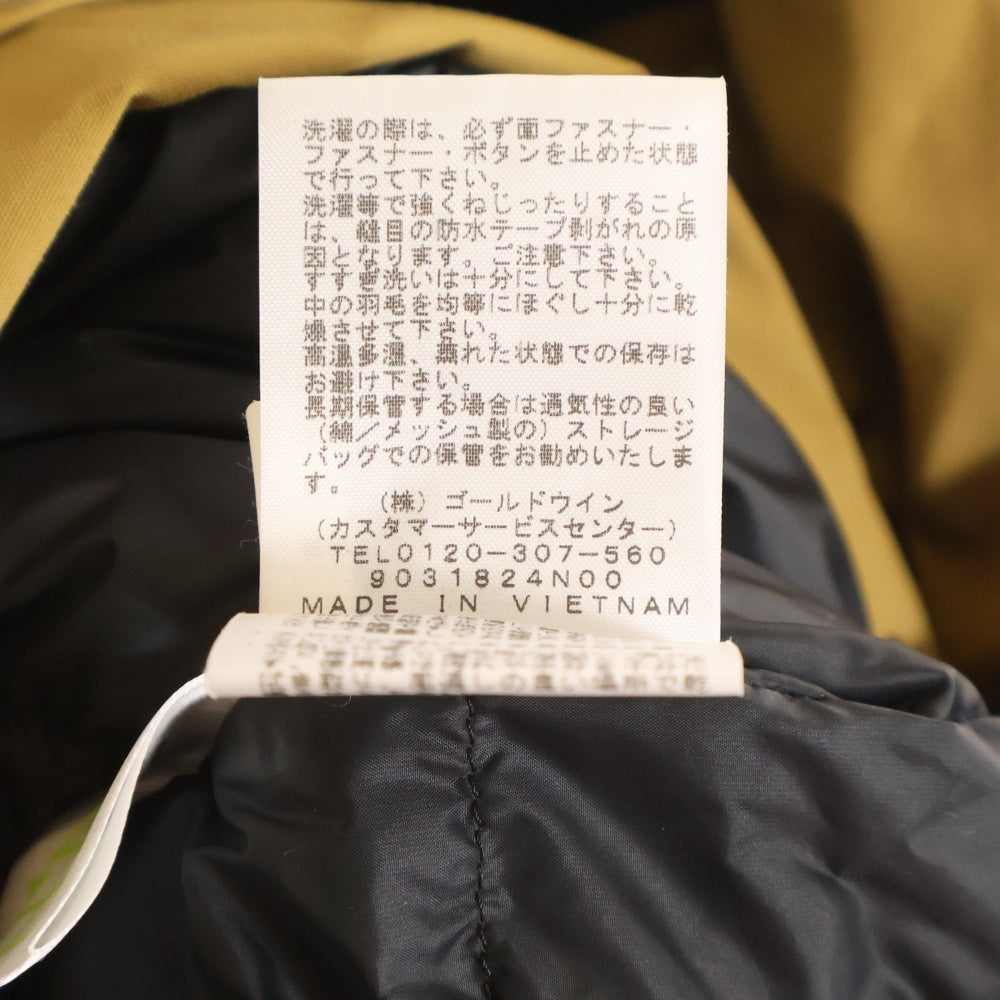 洗濯の際は、必ず面ファスナー・
ファスナー・ボタンを止めた状態
で行って下さい。
洗濯等で強くねじったりすること
は、縫目の防水テープ剥がれの原
因となります。ご注意下さい。
すすぎ洗いは十分にして下さい。
中の羽毛を均等にほぐし十分に乾
燥させて下さい。
高温多湿、蒸れた状態での保存は
お避け下さい。
長期保管する場合は通気性の良い
(綿/メッシュ製の)ストレージ
バッグでの保管をお勧めいたしま
す。
(株)ゴールドウイン
(カスタマーサービスセンター)
TEL0120-307-560
9031824N00
MADE IN VIETNAM